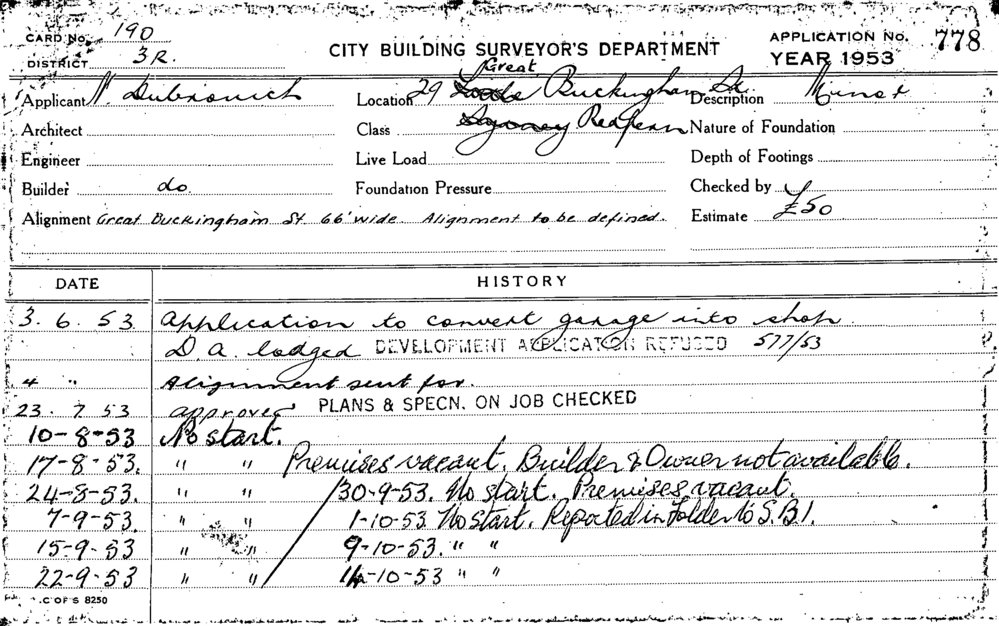 CARD No. 190
DISTRICT 3R.
CITY BUILDING SURVEYOR'S DEPARTMENT
APPLICATION No. 778
YEAR 1953
Applicant N. Dubrovich
Location 29 Great Buckingham St
Description Minor
Architect
Class Sydney Redfern
Nature of Foundation
Engineer
Live Load
Depth of Footings
Builder do
Foundation Pressure
Checked by
Alignment Great Buckingham St. 66' wide. Alignment to be defined.
Estimate £50
DATE HISTORY
3. 6. 53 Application to convert garage into shop
D. A. lodged DEVELOPMENT APPLICATION REFUSED 577/53
4 " Alignment sent for.
23. 7. 53 approved PLANS & SPECN. ON JOB CHECKED
10-8-53 No start.
17-8-53. " " Premises vacant. Builder & Owner not available.
24-8-53. " " / 30-9-53. No start. Premises vacant.
7-9-53. " " 1-10-53 No start. Reported in Folder to S.B.I.
15-9-53 " " 9-10-53. " "
22-9-53 " " 14-10-53 " "
C OF S 8250